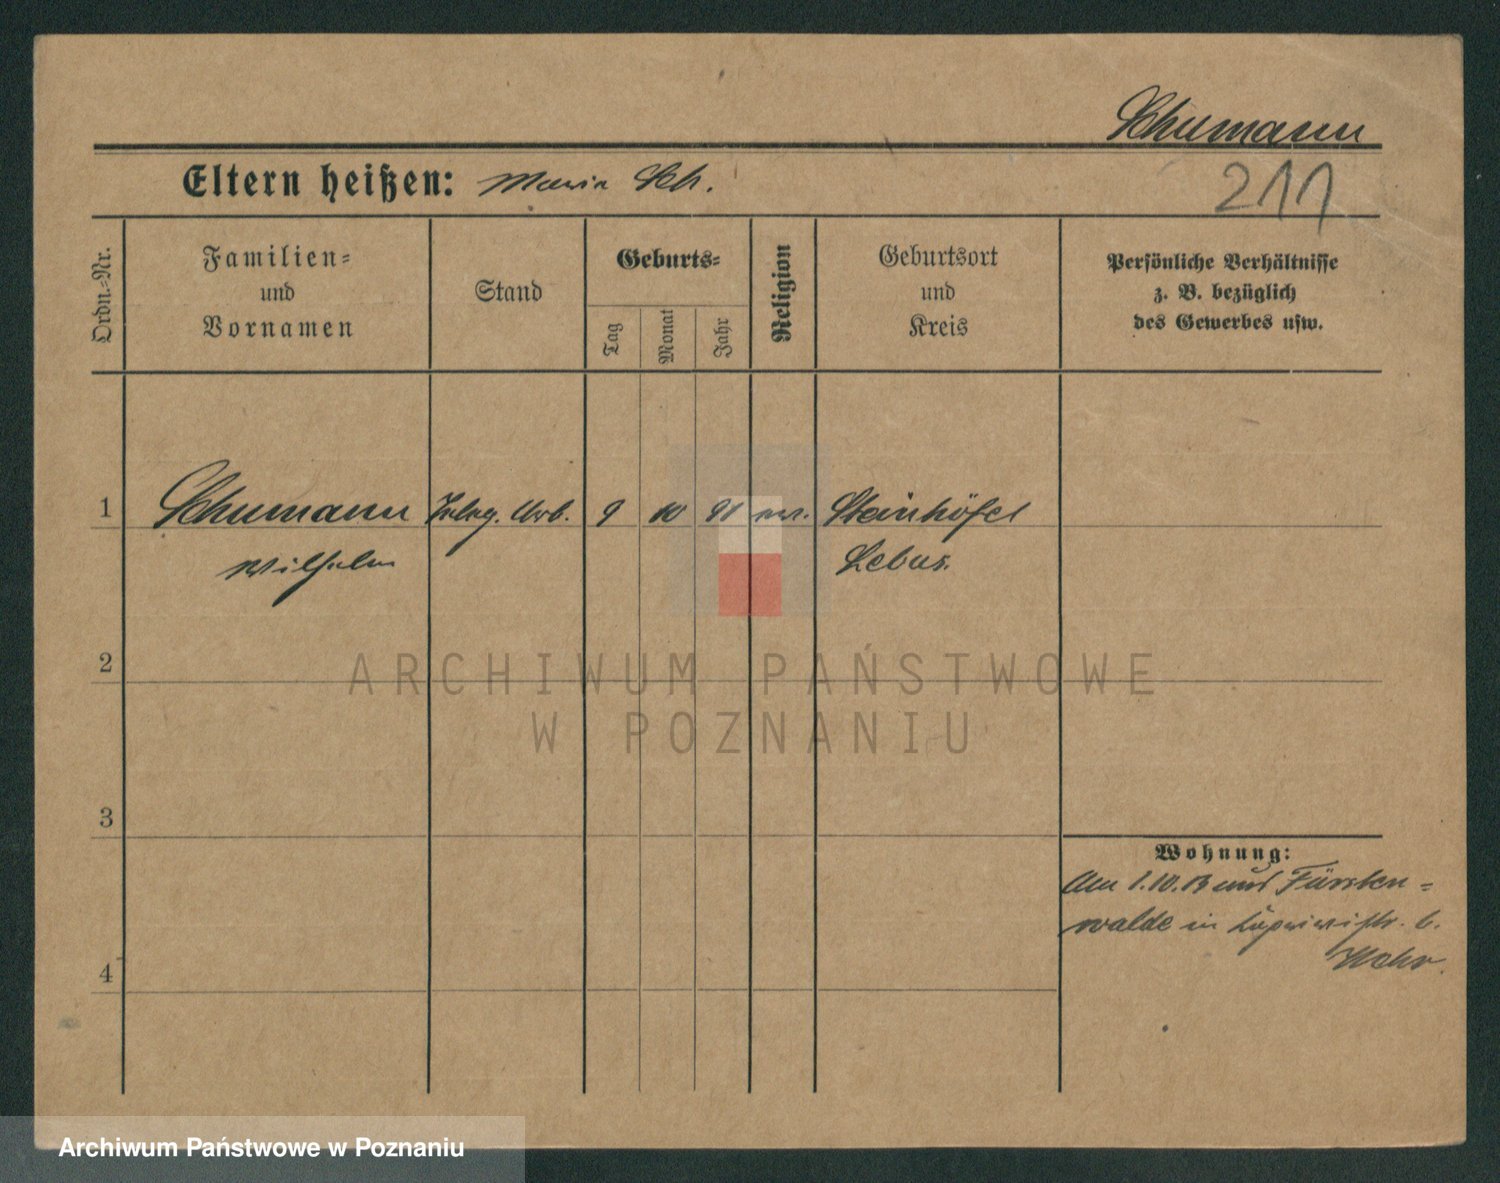 Schumann
Eltern heißen: Maria Sch.
211
Ordn.-Nr.
Familien-
und
Vornamen
Stand
Geburts-
Tag
Monat
Jahr
Religion
Geburtsort
und
Kreis
Persönliche Verhältnisse
z. B. bezüglich
des Gewerbes usw.
1
Schumann
9
10
91
Steinhöfel
Wilhelm
Lebus.
2
ARCHIWUM PAŃSTWOWE
W POZNANIU
3
Wohnung:
Am 1.10.13 Fürsten-
walde in
4
Archiwum Państwowe w Poznaniu